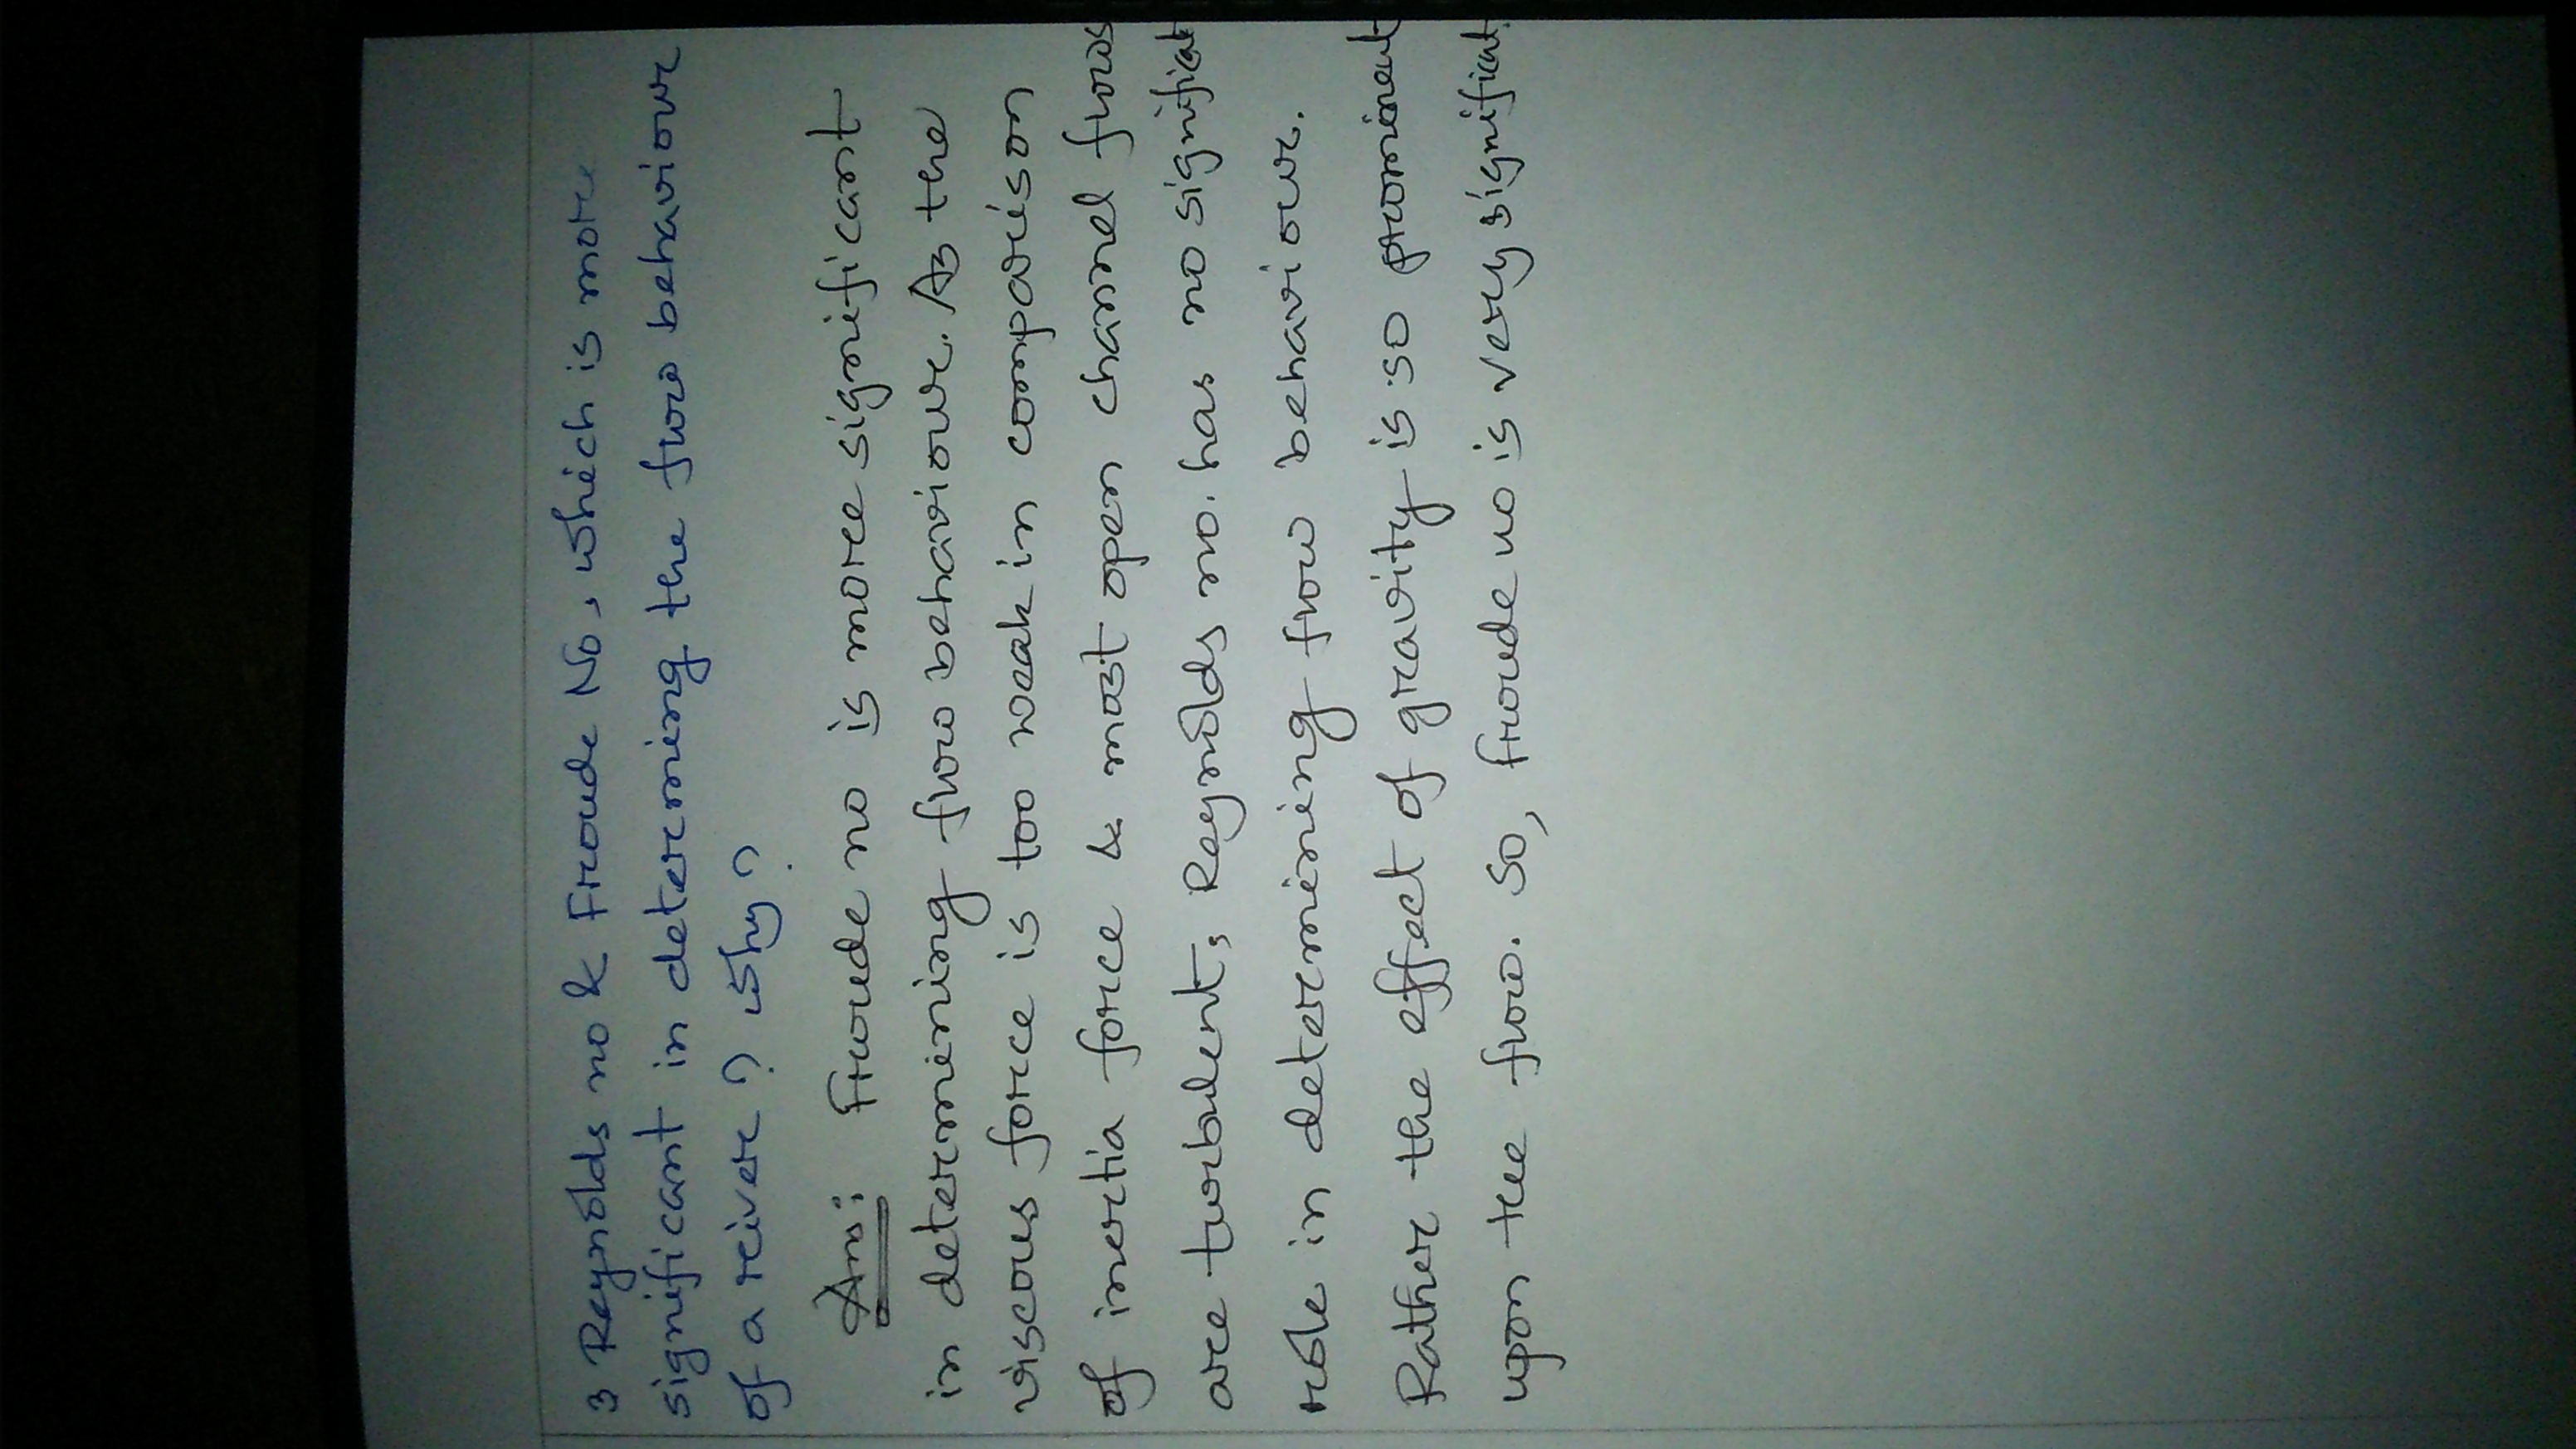 3 Reynolds no & Froude No, which is more
significant in determining the flow behaviour
of a river? Why?
Ans: Froude no is more significant
in determining flow behaviour. As the
viscous force is too weak in comparison
of inertia force & most open channel flows
are turbulent, Reynolds no. has no significat
role in determining flow behaviour.
Rather the effect of gravity is so promionent
upon the flow. So, froude no is very significat.